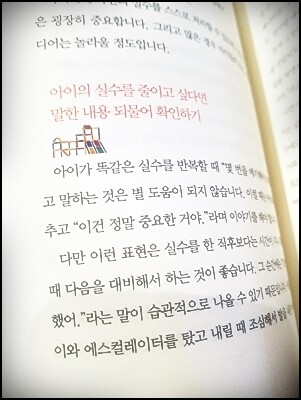 실수를 스스로 처리할 수
은 굉장히 중요합니다. 그리고 많은 경우
디어는 놀라울 정도입니다.
아이의 실수를 줄이고 싶다면
말한 내용 되물어 확인하기
아이가 똑같은 실수를 반복할 때 “몇 번을
고 말하는 것은 별 도움이 되지 않습니다. 이럴
추고 “이건 정말 중요한 거야.”라며 이야기를
다만 이런 표현은 실수를 한 직후보다는 시간이
때 다음을 대비해서 하는 것이 좋습니다. 그 순간에는
했어.”라는 말이 습관적으로 나올 수 있기 때문입니다.
이와 에스컬레이터를 탔고 내릴 때 조심해서 발을